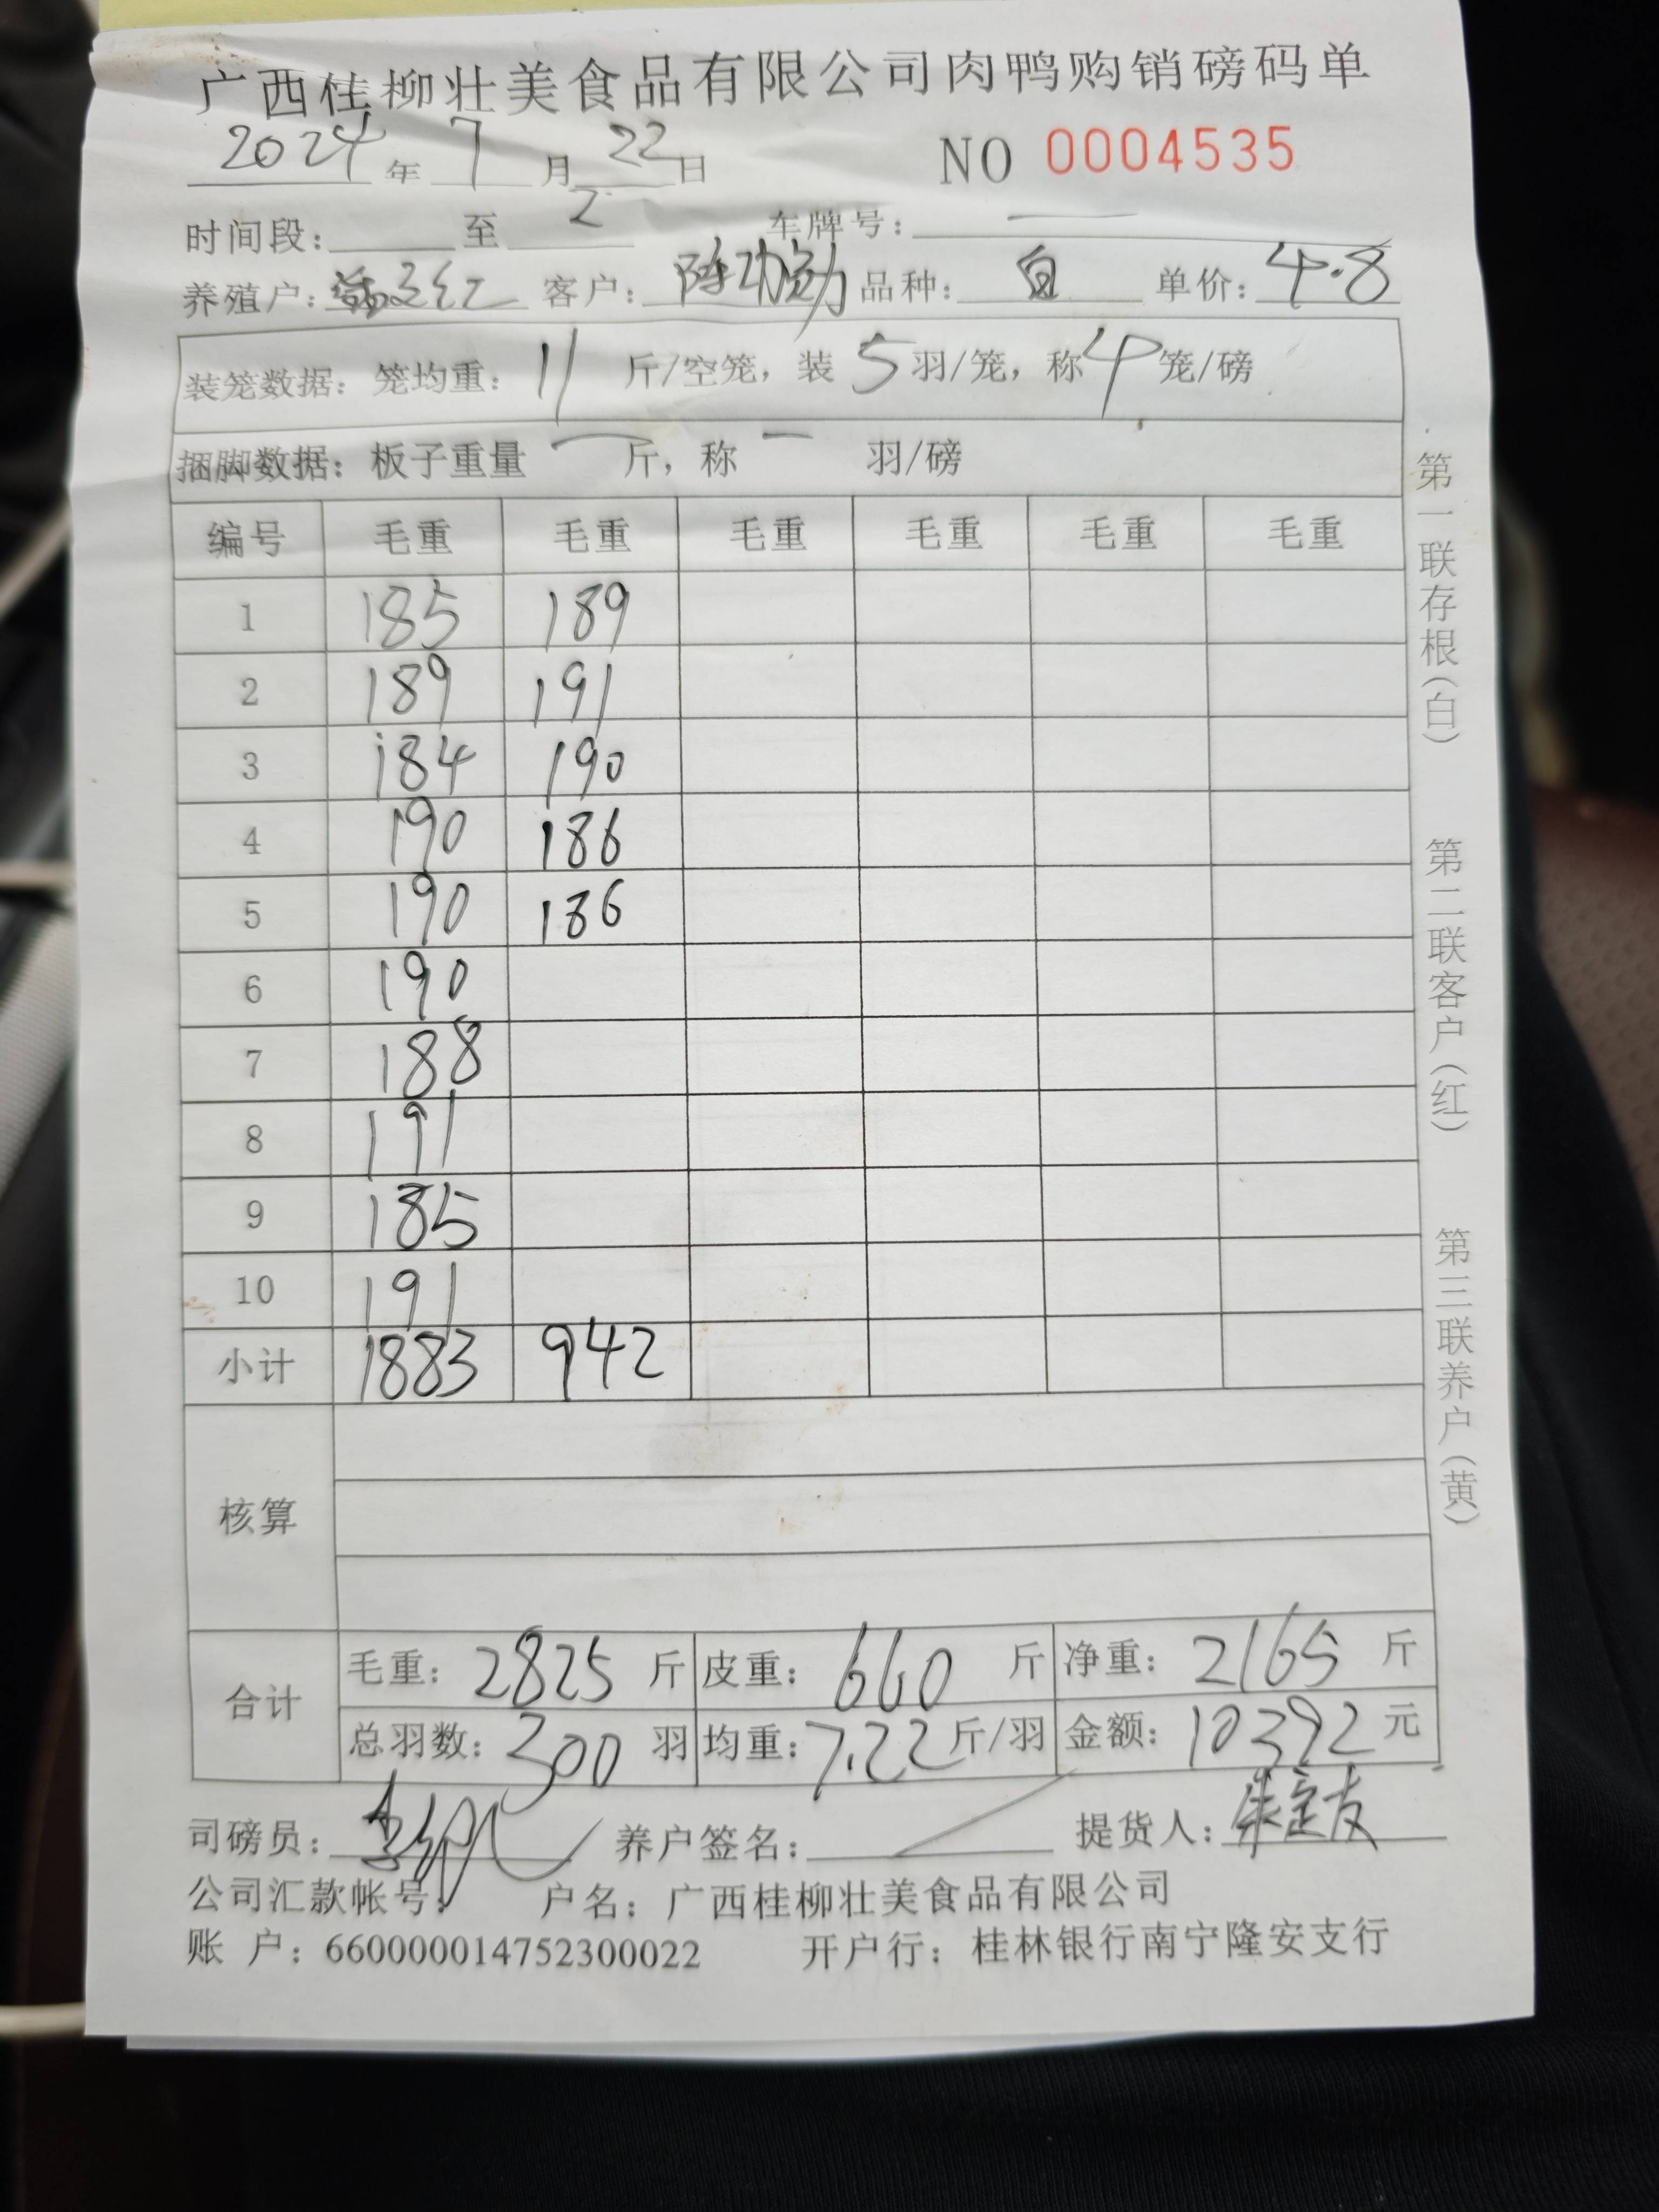 广西桂柳壮美食品有限公司肉鸭购销磅码单
2024年 7月 22日 NO 0004535
时间段: 至 2 车牌号: —
养殖户: 客户: 陈功勋 品种: 白 单价: 4.8
装笼数据: 笼均重: 11 斤/空笼, 装 5 羽/笼, 称 4 笼/磅
捆脚数据: 板子重量 — 斤, 称 — 羽/磅
编号 毛重 毛重 毛重 毛重 毛重 毛重
1 185 189
2 189 191
3 184 190
4 190 186
5 190 186
6 190
7 188
8 191
9 185
10 191
小计 1883 942
核算
合计 毛重: 2825 斤 皮重: 660 斤 净重: 2165 斤
总羽数: 300 羽 均重: 7.22 斤/羽 金额: 10392 元
司磅员: 养户签名: 提货人: 朱定友
公司汇款帐号: 户名: 广西桂柳壮美食品有限公司
账 户: 660000014752300022 开户行: 桂林银行南宁隆安支行
第一联存根(白) 第二联客户(红) 第三联养户(黄)